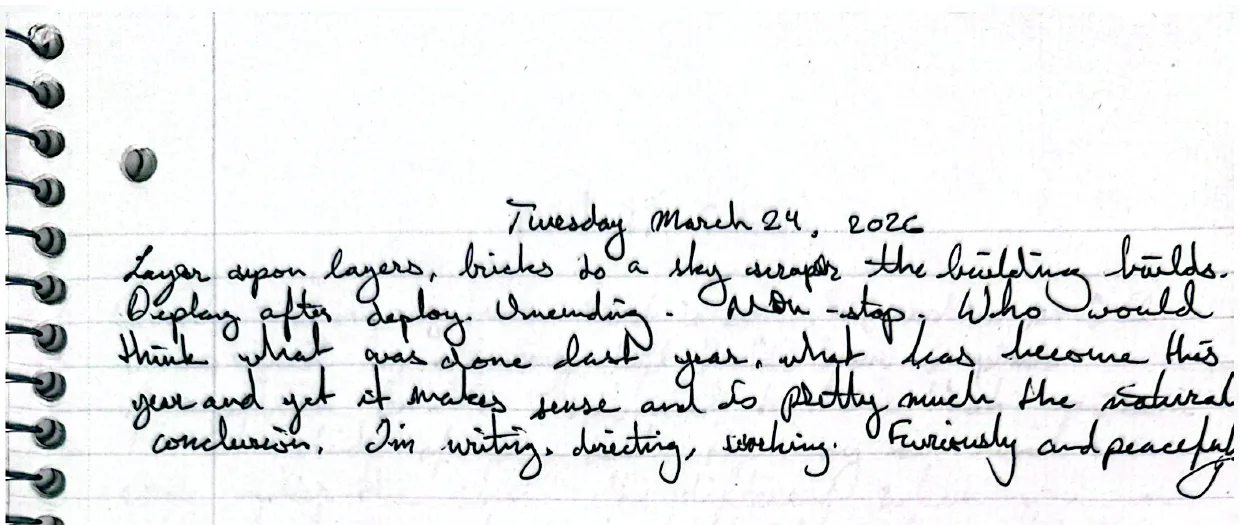 Tuesday March 24, 2026
Layer upon layers, bricks to a sky scraper the building builds.
Deploy after deploy. Unending. Non-stop. Who would
think what was done last year, what has become this
year and yet it makes sense and is pretty much the natural
conclusion. I'm writing, directing, working. Furiously and peacefully